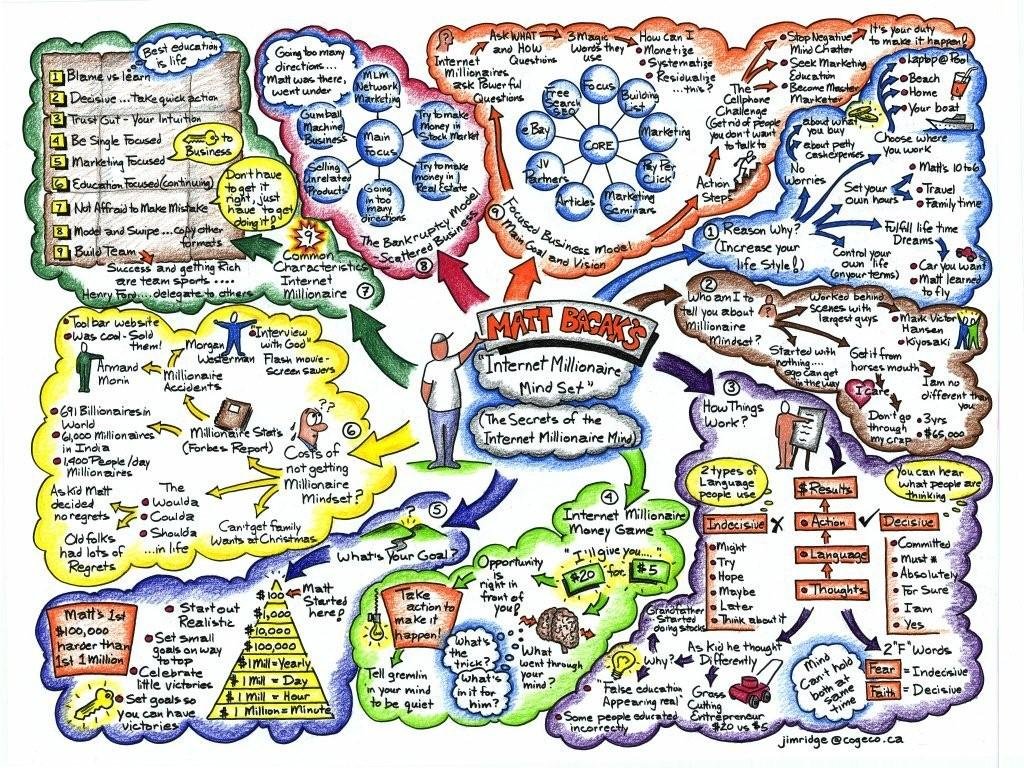 MATT BACAK'S
"Internet Millionaire
Mind Set"
(The Secrets of the
Internet Millionaire Mind)
① Reason Why?
(Increase your
life Style!)
No
Worries
about petty
cash expenses
about what
you buy
Choose where
you work
Laptop @ Pool
Beach
Home
Your boat
Set your
own hours
Matt's 10 to 6
Travel
Family time
Fulfill life time
Dreams
Car you want
Matt learned
to fly
Control your
own life
(on your terms)
② Who am I to
tell you about
Millionaire
Mindset?
Worked behind
scenes with
largest guys
Mark Victor
Hansen
Kiyosaki
Started with
nothing....
ego can get
in the way
Get it from
horses mouth
I care
Don't go
through
my crap
I am no
different than
you
3yrs
$65,000
③ How Things
Work?
2 types of
Language
people use
You can hear
what people are
thinking
$ Results
Action
Language
Thoughts
Indecisive X
Might
Try
Hope
Maybe
Later
Think about it
Decisive
Committed
Must *
Absolutely
For Sure
I am
Yes
2 "F" Words
Fear = Indecisive
Faith = Decisive
Mind
Can't hold
both at
same
time
As Kid he thought
Differently
Grass
Cutting
Entrepreneur
$20 vs $5
Why?
Grandfather
Started
doing stocks
"False education
Appearing real"
Some people educated
incorrectly
jimridge@cogeco.ca
④ Internet Millionaire
Money Game
"I'll give you...."
$20 for $5
Opportunity
is right in
front of
you!
Take
action to
make it
happen!
Tell gremlin
in your mind
to be quiet
What's
the trick?
What's
in it for
him?
What
went through
your mind?
⑤ What's Your Goal?
?
Matt
Started
here!
$100
$1,000
$10,000
$100,000
$1 Mill = Yearly
$1 Mill = Day
$1 Mill = Hour
$1 Million = Minute
Start out
Realistic
Set small
goals on way
to top
Celebrate
little victories
Set goals so
you can have
victories
Matt's 1st
$100,000
harder than
1st 1 Million
⑥ Costs of
not getting
Millionaire
Mindset?
??
Millionaire
Accidents
Morgan
Westerman
"Interview
with God"
Flash movie-
Screen savers
Armand
Morin
Tool bar website
Was cool - Sold
them!
Millionaire Stats
(Forbes Report)
691 Billionaires in
World
61,000 Millionaires
in India
1,400 People/day
Millionaires
The
Woulda
Coulda
Shoulda
...in life
As kid Matt
decided
no regrets
Old folks
had lots of
Regrets
Can't get family
wants at Christmas
⑦ 9
Common
Characteristics
Internet
Millionaire
Best education
is life
1 Blame vs learn
2 Decisive...take quick action
3 Trust Gut - Your Intuition
4 Be Single Focused
5 Marketing Focused
6 Education Focused (continuing)
7 Not Affraid to Make Mistake
8 Model and Swipe...copy other
formats
9 Build Team
to
Business
Don't have
to get it
right, just
have to get
doing it!
Success and getting Rich
are team sports....
Henry Ford....delegate to others
⑧ The Bankruptcy Model
- Scattered Business
Going too many
directions...
Matt was there,
went under
Main
Focus
MLM
Network
Marketing
Try to make
money in
Stock Market
Try to make
money in
Real Estate
Going
in too many
directions
Selling
Unrelated
Products
Gumball
Machine
Business
⑨ Focused Business Model
Main Goal and Vision
CORE
Focus
Building
List
Marketing
Pay Per
Click
Marketing
Seminars
Articles
JV
Partners
eBay
Free
Search
SEO
Internet
Millionaires
ask Powerful
Questions
Ask WHAT
and HOW
Questions
3 Magic
Words they
use
How can I
Monetize
Systematize
Residualize
...this?
Action
Steps
The
Cellphone
Challenge
(Get rid of people
you don't want
to talk to)
Stop Negative
Mind Chatter
Seek Marketing
Education
Become Master
Marketer
It's your duty
to make it happen!